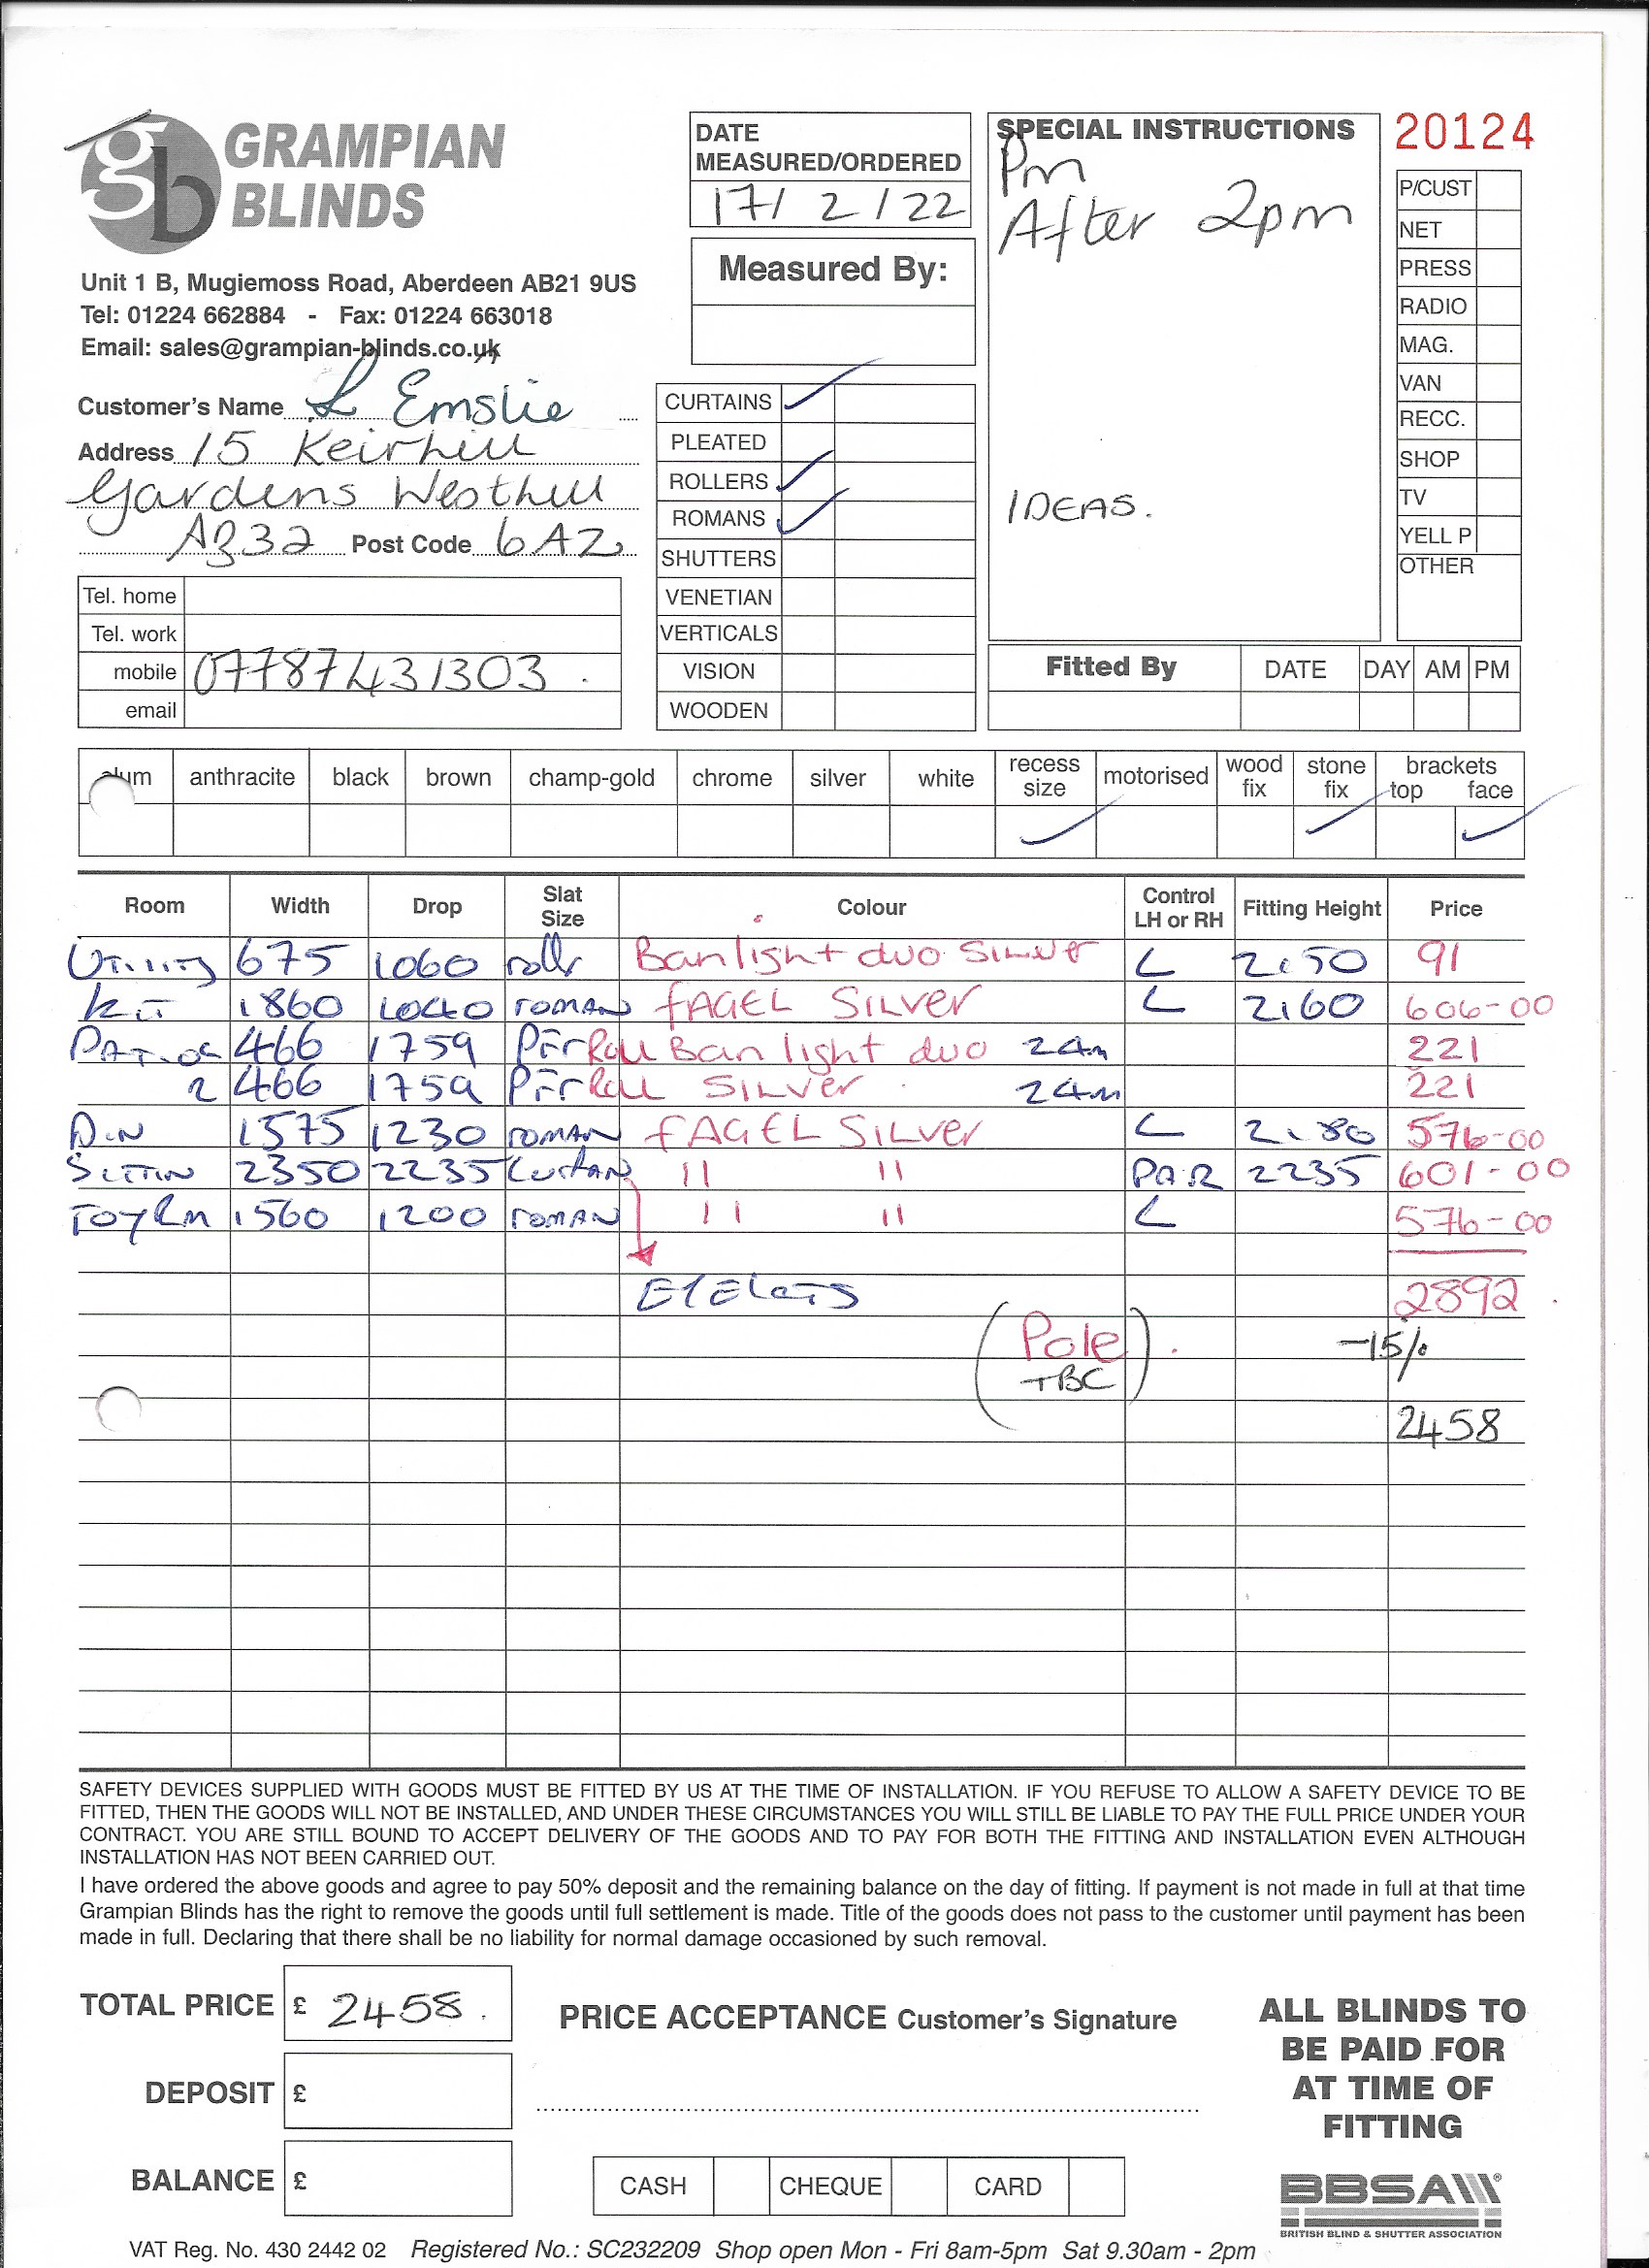 GRAMPIAN
BLINDS
Unit 1 B, Mugiemoss Road, Aberdeen AB21 9US
Tel: 01224 662884 - Fax: 01224 663018
Email: sales@grampian-blinds.co.uk
Customer's Name L Emslie
Address 15 Keirhill
Gardens Westhill
AB32 Post Code 6AZ
Tel. home
Tel. work
mobile 07787431303
email
DATE
MEASURED/ORDERED
17/2/22
Measured By:
CURTAINS ✓
PLEATED
ROLLERS ✓
ROMANS ✓
SHUTTERS
VENETIAN
VERTICALS
VISION
WOODEN
SPECIAL INSTRUCTIONS
Pm
After 2pm
IDEAS.
20124
P/CUST
NET
PRESS
RADIO
MAG.
VAN
RECC.
SHOP
TV
YELL P
OTHER
Fitted By DATE DAY AM PM
alum anthracite black brown champ-gold chrome silver white recess size motorised wood fix stone fix brackets top face
✓ ✓ ✓
Room Width Drop Slat Size Colour Control LH or RH Fitting Height Price
Utility 675 1060 rollr Banlight duo Silver L 2.150 91
Kit 1860 1040 roman FAGEL SILVER L 2160 606-00
466 1759 PFr Roll Ban light duo 24m 221
2 466 1759 PFr Roll SILVER 24m 221
Din 1575 1230 roman FAGEL SILVER L 2.180 576-00
Sittin 2350 2235 Curtan " " PAIR 2235 601-00
Toy Rm 1560 1200 roman " " L 576-00
EYELETS 2892
(Pole TBC). -15%
2458
SAFETY DEVICES SUPPLIED WITH GOODS MUST BE FITTED BY US AT THE TIME OF INSTALLATION. IF YOU REFUSE TO ALLOW A SAFETY DEVICE TO BE
FITTED, THEN THE GOODS WILL NOT BE INSTALLED, AND UNDER THESE CIRCUMSTANCES YOU WILL STILL BE LIABLE TO PAY THE FULL PRICE UNDER YOUR
CONTRACT. YOU ARE STILL BOUND TO ACCEPT DELIVERY OF THE GOODS AND TO PAY FOR BOTH THE FITTING AND INSTALLATION EVEN ALTHOUGH
INSTALLATION HAS NOT BEEN CARRIED OUT.
I have ordered the above goods and agree to pay 50% deposit and the remaining balance on the day of fitting. If payment is not made in full at that time
Grampian Blinds has the right to remove the goods until full settlement is made. Title of the goods does not pass to the customer until payment has been
made in full. Declaring that there shall be no liability for normal damage occasioned by such removal.
TOTAL PRICE £ 2458.
DEPOSIT £
BALANCE £
PRICE ACCEPTANCE Customer's Signature
CASH CHEQUE CARD
ALL BLINDS TO
BE PAID FOR
AT TIME OF
FITTING
BBSA
BRITISH BLIND & SHUTTER ASSOCIATION
VAT Reg. No. 430 2442 02 Registered No.: SC232209 Shop open Mon - Fri 8am-5pm Sat 9.30am - 2pm